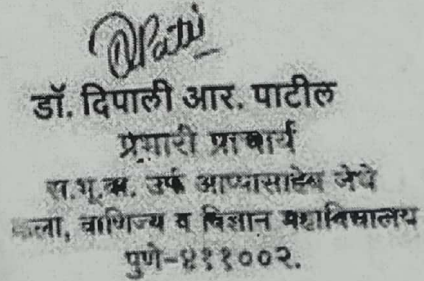 DPatil
डॉ. दिपाली आर. पाटील
प्रभारी प्राचार्य
स.गू.का. उर्फ आप्पासाहेब जेधे
कला, वाणिज्य व विज्ञान महाविद्यालय
पुणे-४११००२.